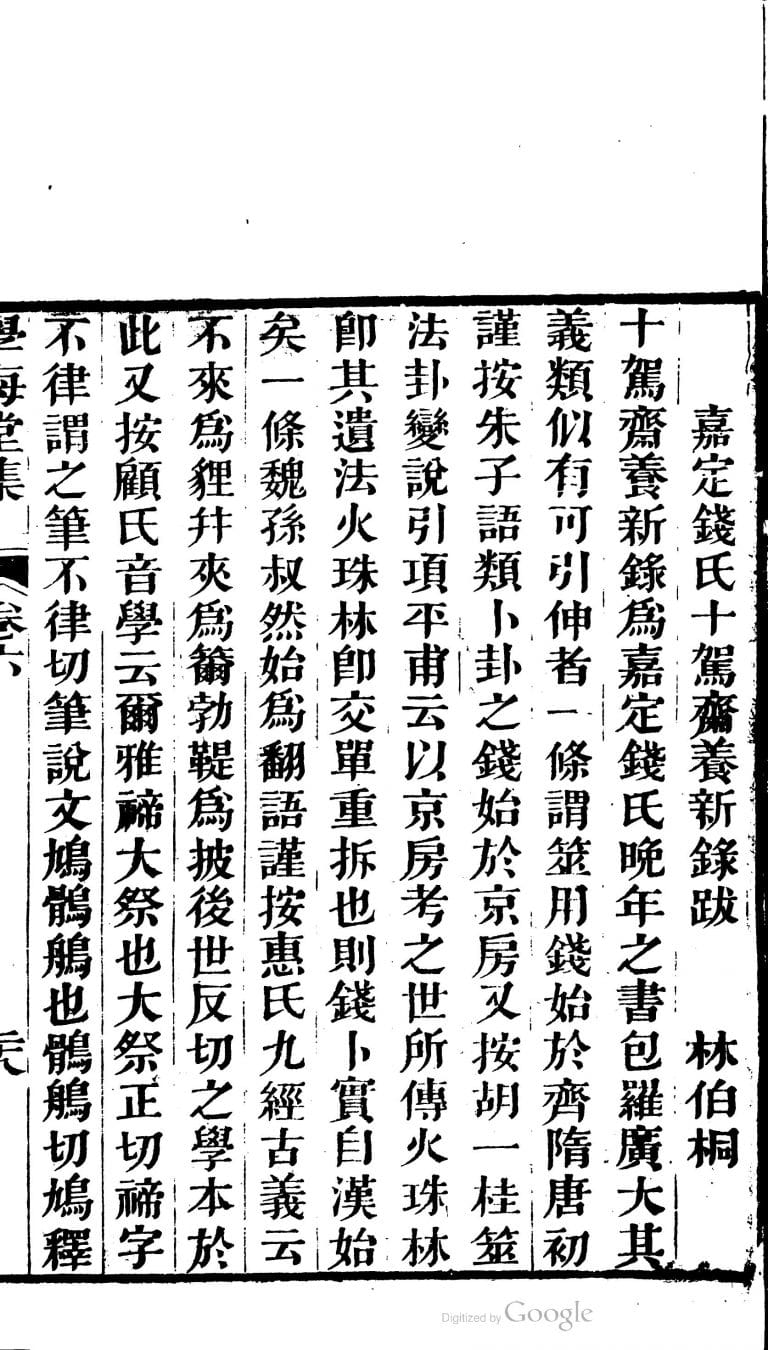 嘉定錢氏十駕齋養新錄跋　林伯桐
十駕齋養新錄爲嘉定錢氏晚年之書包羅廣大其
義類似有可引伸者一條謂筮用錢始於齊隋唐初
謹按朱子語類卜卦之錢始於京房又按胡一桂筮
法卦變說引項平甫云以京房考之世所傳火珠林
卽其遺法火珠林卽交單重拆也則錢卜實自漢始
矣一條魏孫叔然始爲翻語謹按惠氏九經古義云
不來爲貍幷夾爲籋勃鞮爲披後世反切之學本於
此又按顧氏音學云爾雅禘大祭也大祭正切禘字
不律謂之筆不律切筆說文鳩鶻鵃也鶻鵃切鳩釋
學海堂集　卷六　二六
Digitized by Google